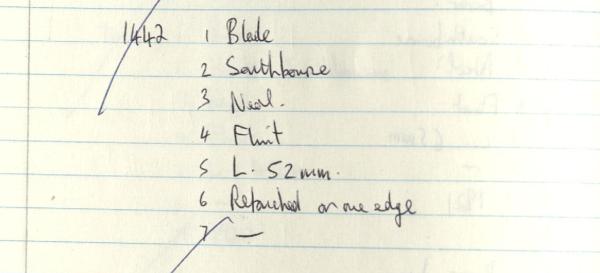 1442 1 Blade
2 Southbourne
3 Neol.
4 Flint
5 L. 52mm.
6 Retouched on one edge
7 —